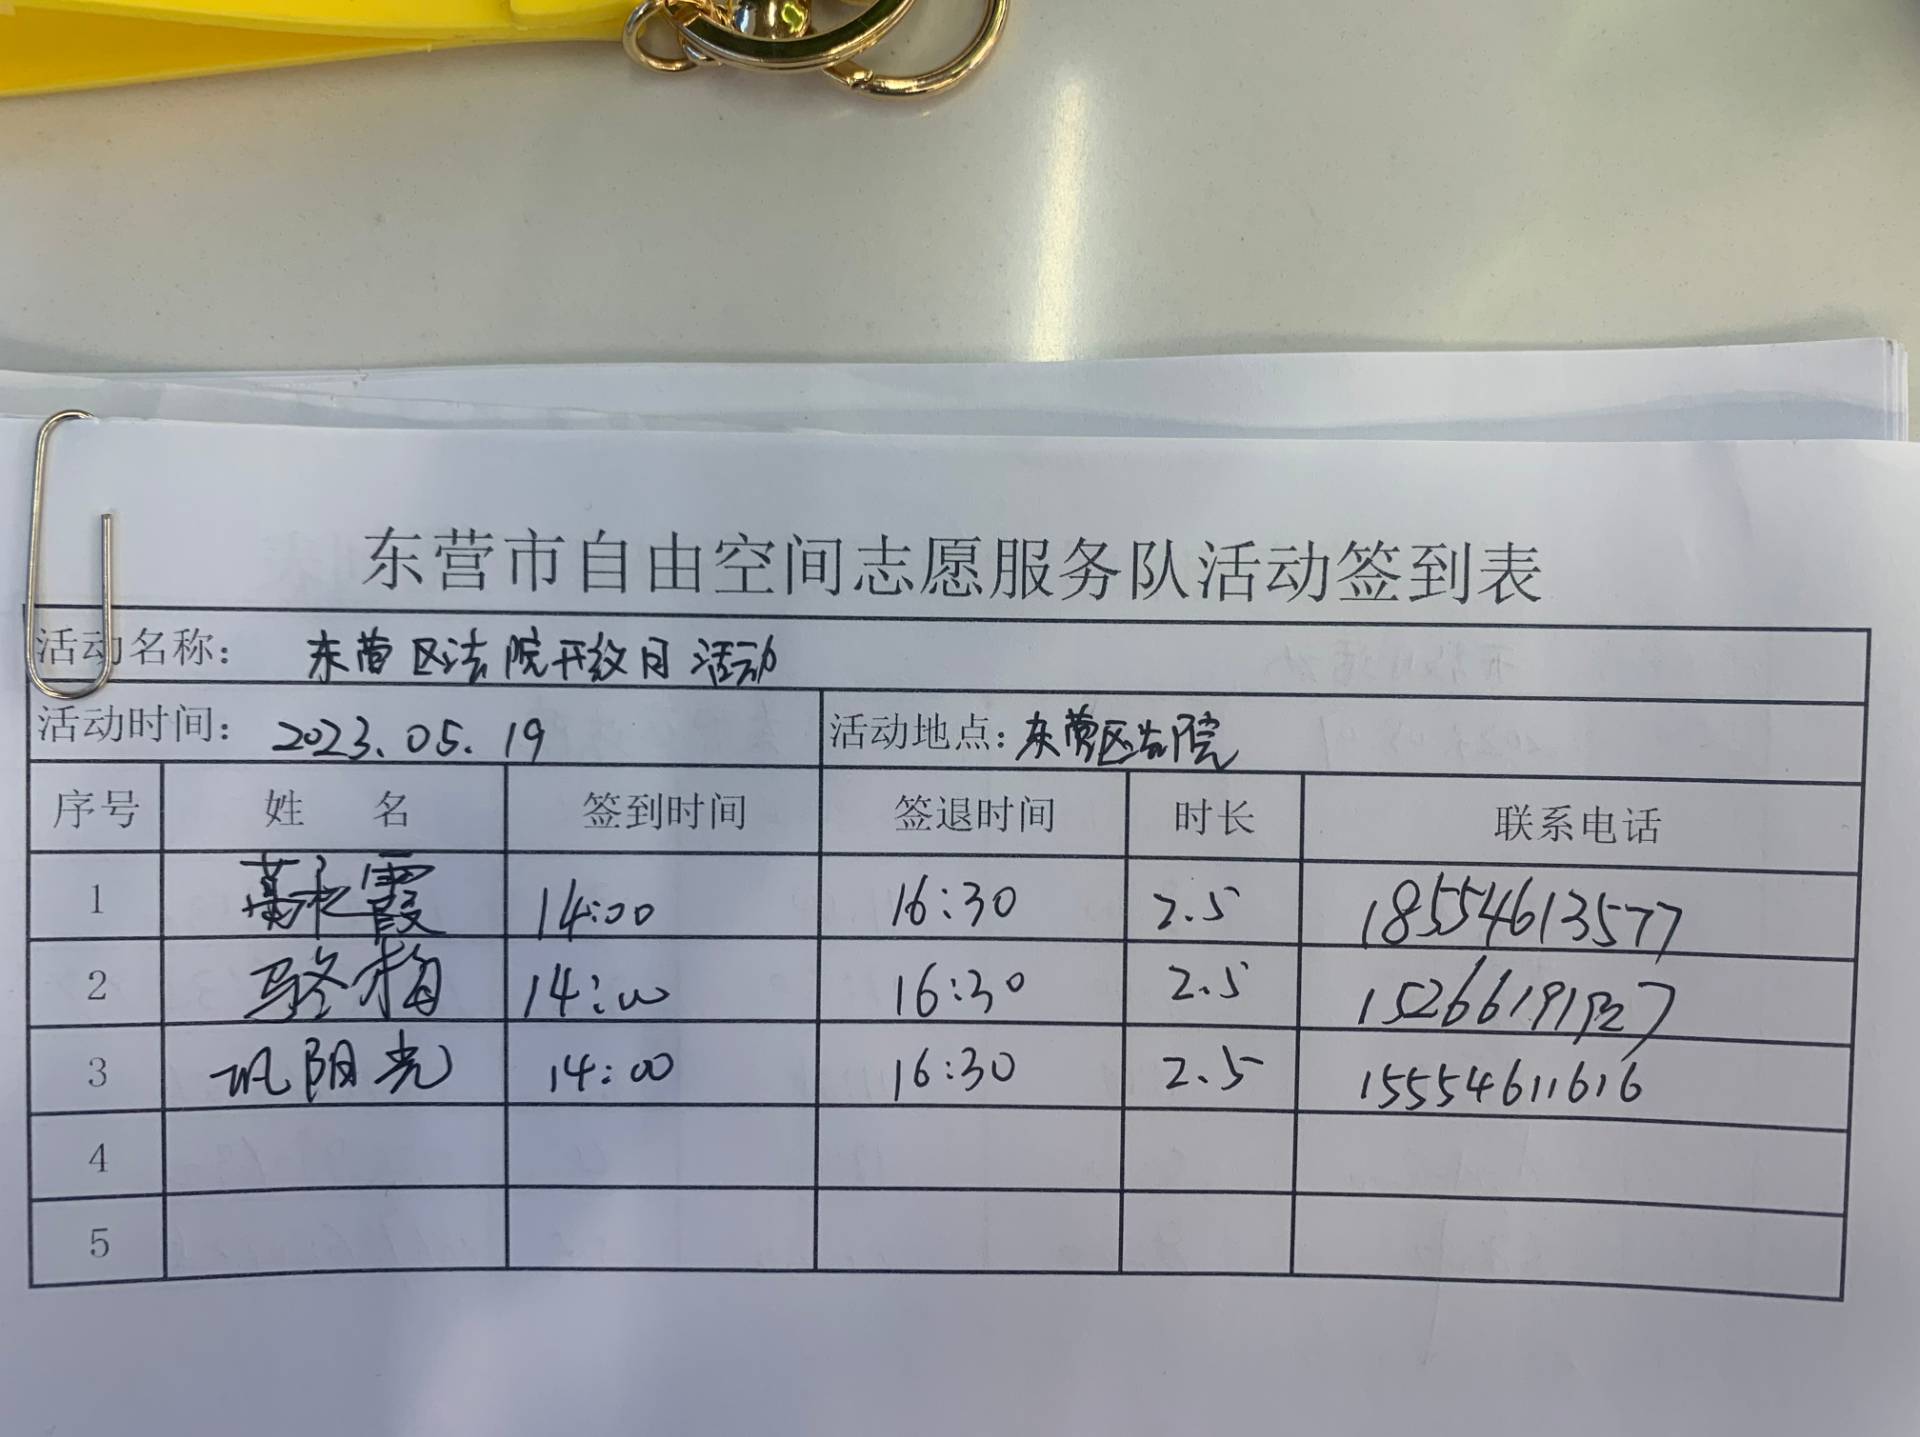 东营市自由空间志愿服务队活动签到表
活动名称： 东营区法院开放日活动
活动时间： 2023.05.19 活动地点： 东营区法院
序号 姓 名 签到时间 签退时间 时长 联系电话
1 霞 14:00 16:30 2.5 18554613577
2 骆梅 14:00 16:30 2.5
3 巩阳光 14:00 16:30 2.5 15554611616
4
5